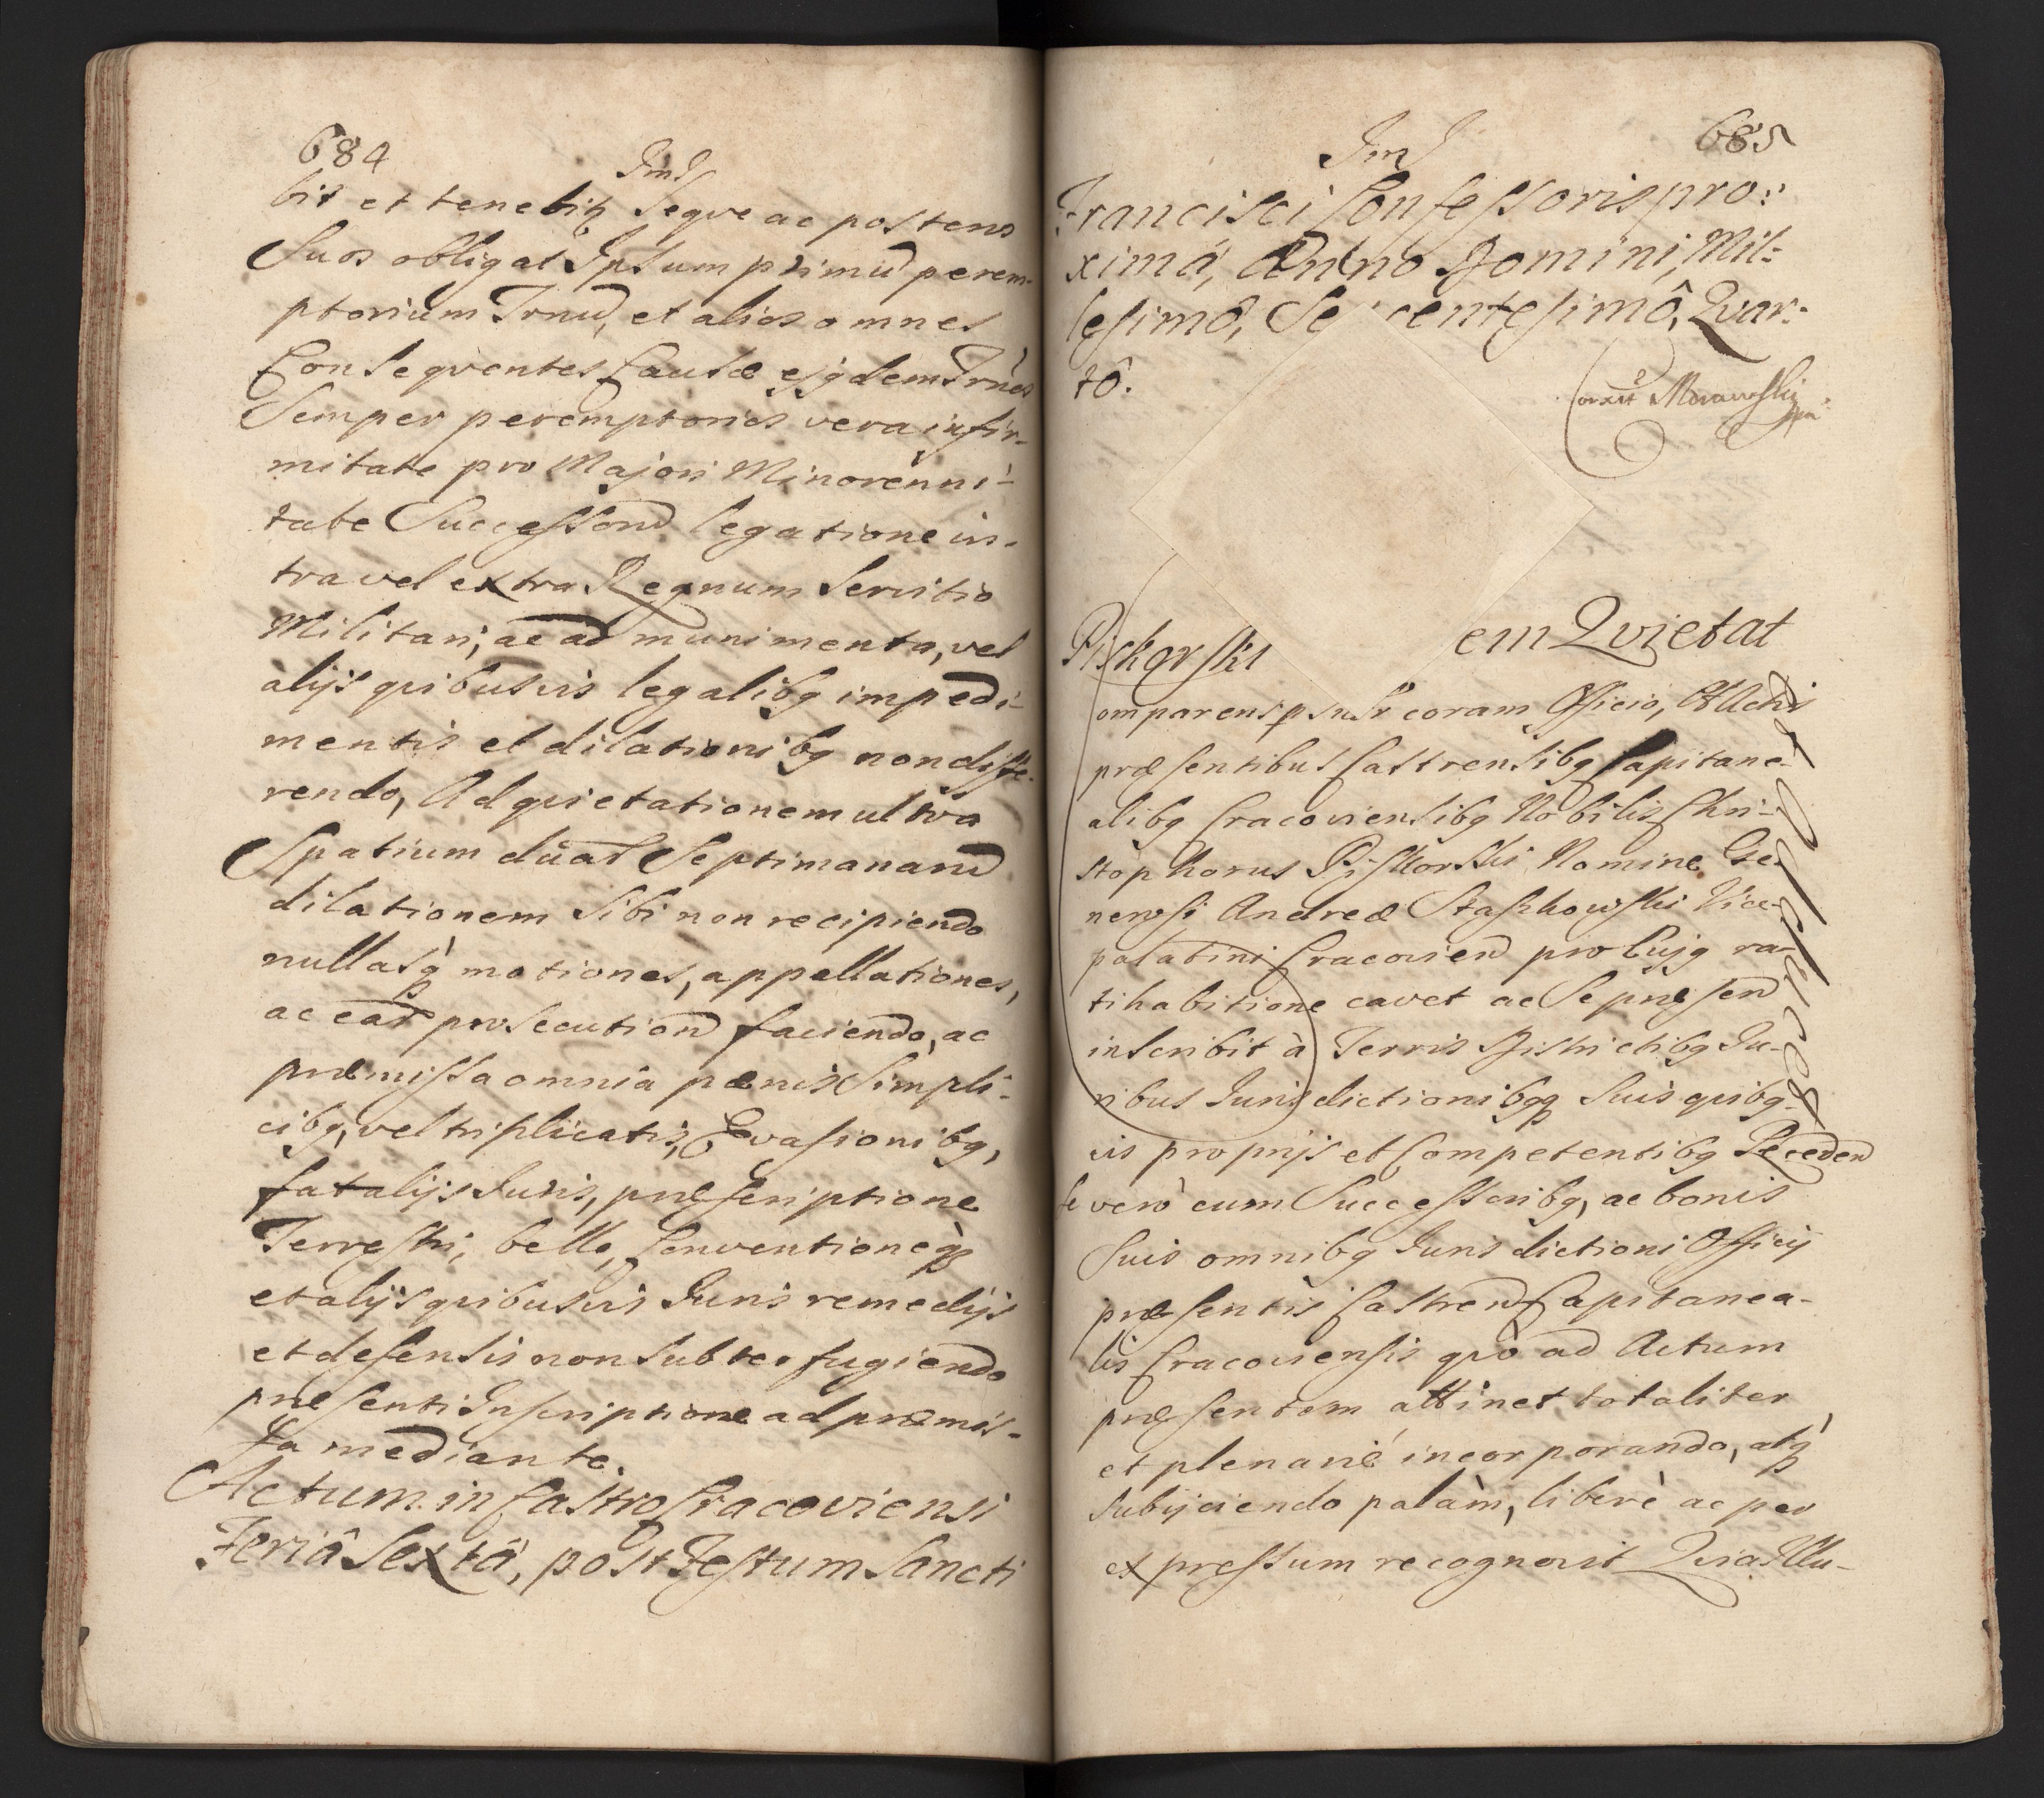 684
Ind
bit et tenebit Seqve ac posteros
Suos obligat Ipsum primu perem-
ptorium Trnu, et alios omnes
Conseqventes Causæ ejqdem Trnos
Semper peremptorios vera infir-
mitate pro Majori Minorenni-
tate Successoru legatione in-
tra vel extra Regnum Servitio
Militari, ac ad munimenta, vel
alijs qvibusvis legalibq impedi-
mentis et dilationibq non diffe-
rendo, Ad qvietationem ultra
Spatium duar Septimanaru
dilationem Sibi non recipiendo
nullasq motiones, appellationes,
ac ear prosecution faciendo, ac
præmissa omnia pænis Simpli-
cibq, vel triplicatis, Evasionibq,
fatalijs Juris, præscriptione
Terrestri, bello, Conventioneqq
et alijs qvibusvis Juris remedijs
et defensis non Subterfugiendo
præsenti Inscriptione ad præmis-
sa mediante.
Actum in Castro Cracoviensi
Feriâ Sextâ, post Festum Sancti
685
Ind
Francisci Confessoris pro:
ximâ, Anno Domini, Mil:
lesimô, Se centesimô, Qvar:
tô.
Morawski
Piskorski em Qvietat
omparens psnlr coram Officio, Et Actis
præsentibus Castrensibq Capitane-
alibq Cracoviensibq Nobilis Chri-
stophorus Piskorski Nomine Ge-
nerosi Andreæ Staszkowski Vice-
palatini Cracovien pro Cujq ra-
tihabitione cavet ac Se præsen
inscribit à Terris Districtibq Ju-
ribus Jurisdictionibqq Suis qvibq-
vis proprijs et Competentibq Receden
se verò cum Successoribq, ac bonis
Suis omnibq Jurisdictioni Officij
præsentis Castren Capitanea-
lis Cracoviensis qvo ad Actum
præsentem attinet totaliter
et plenarie incorporando, atq
Subijciendo palàm, liberè ac per
expressum recognovit Qvia Illu-